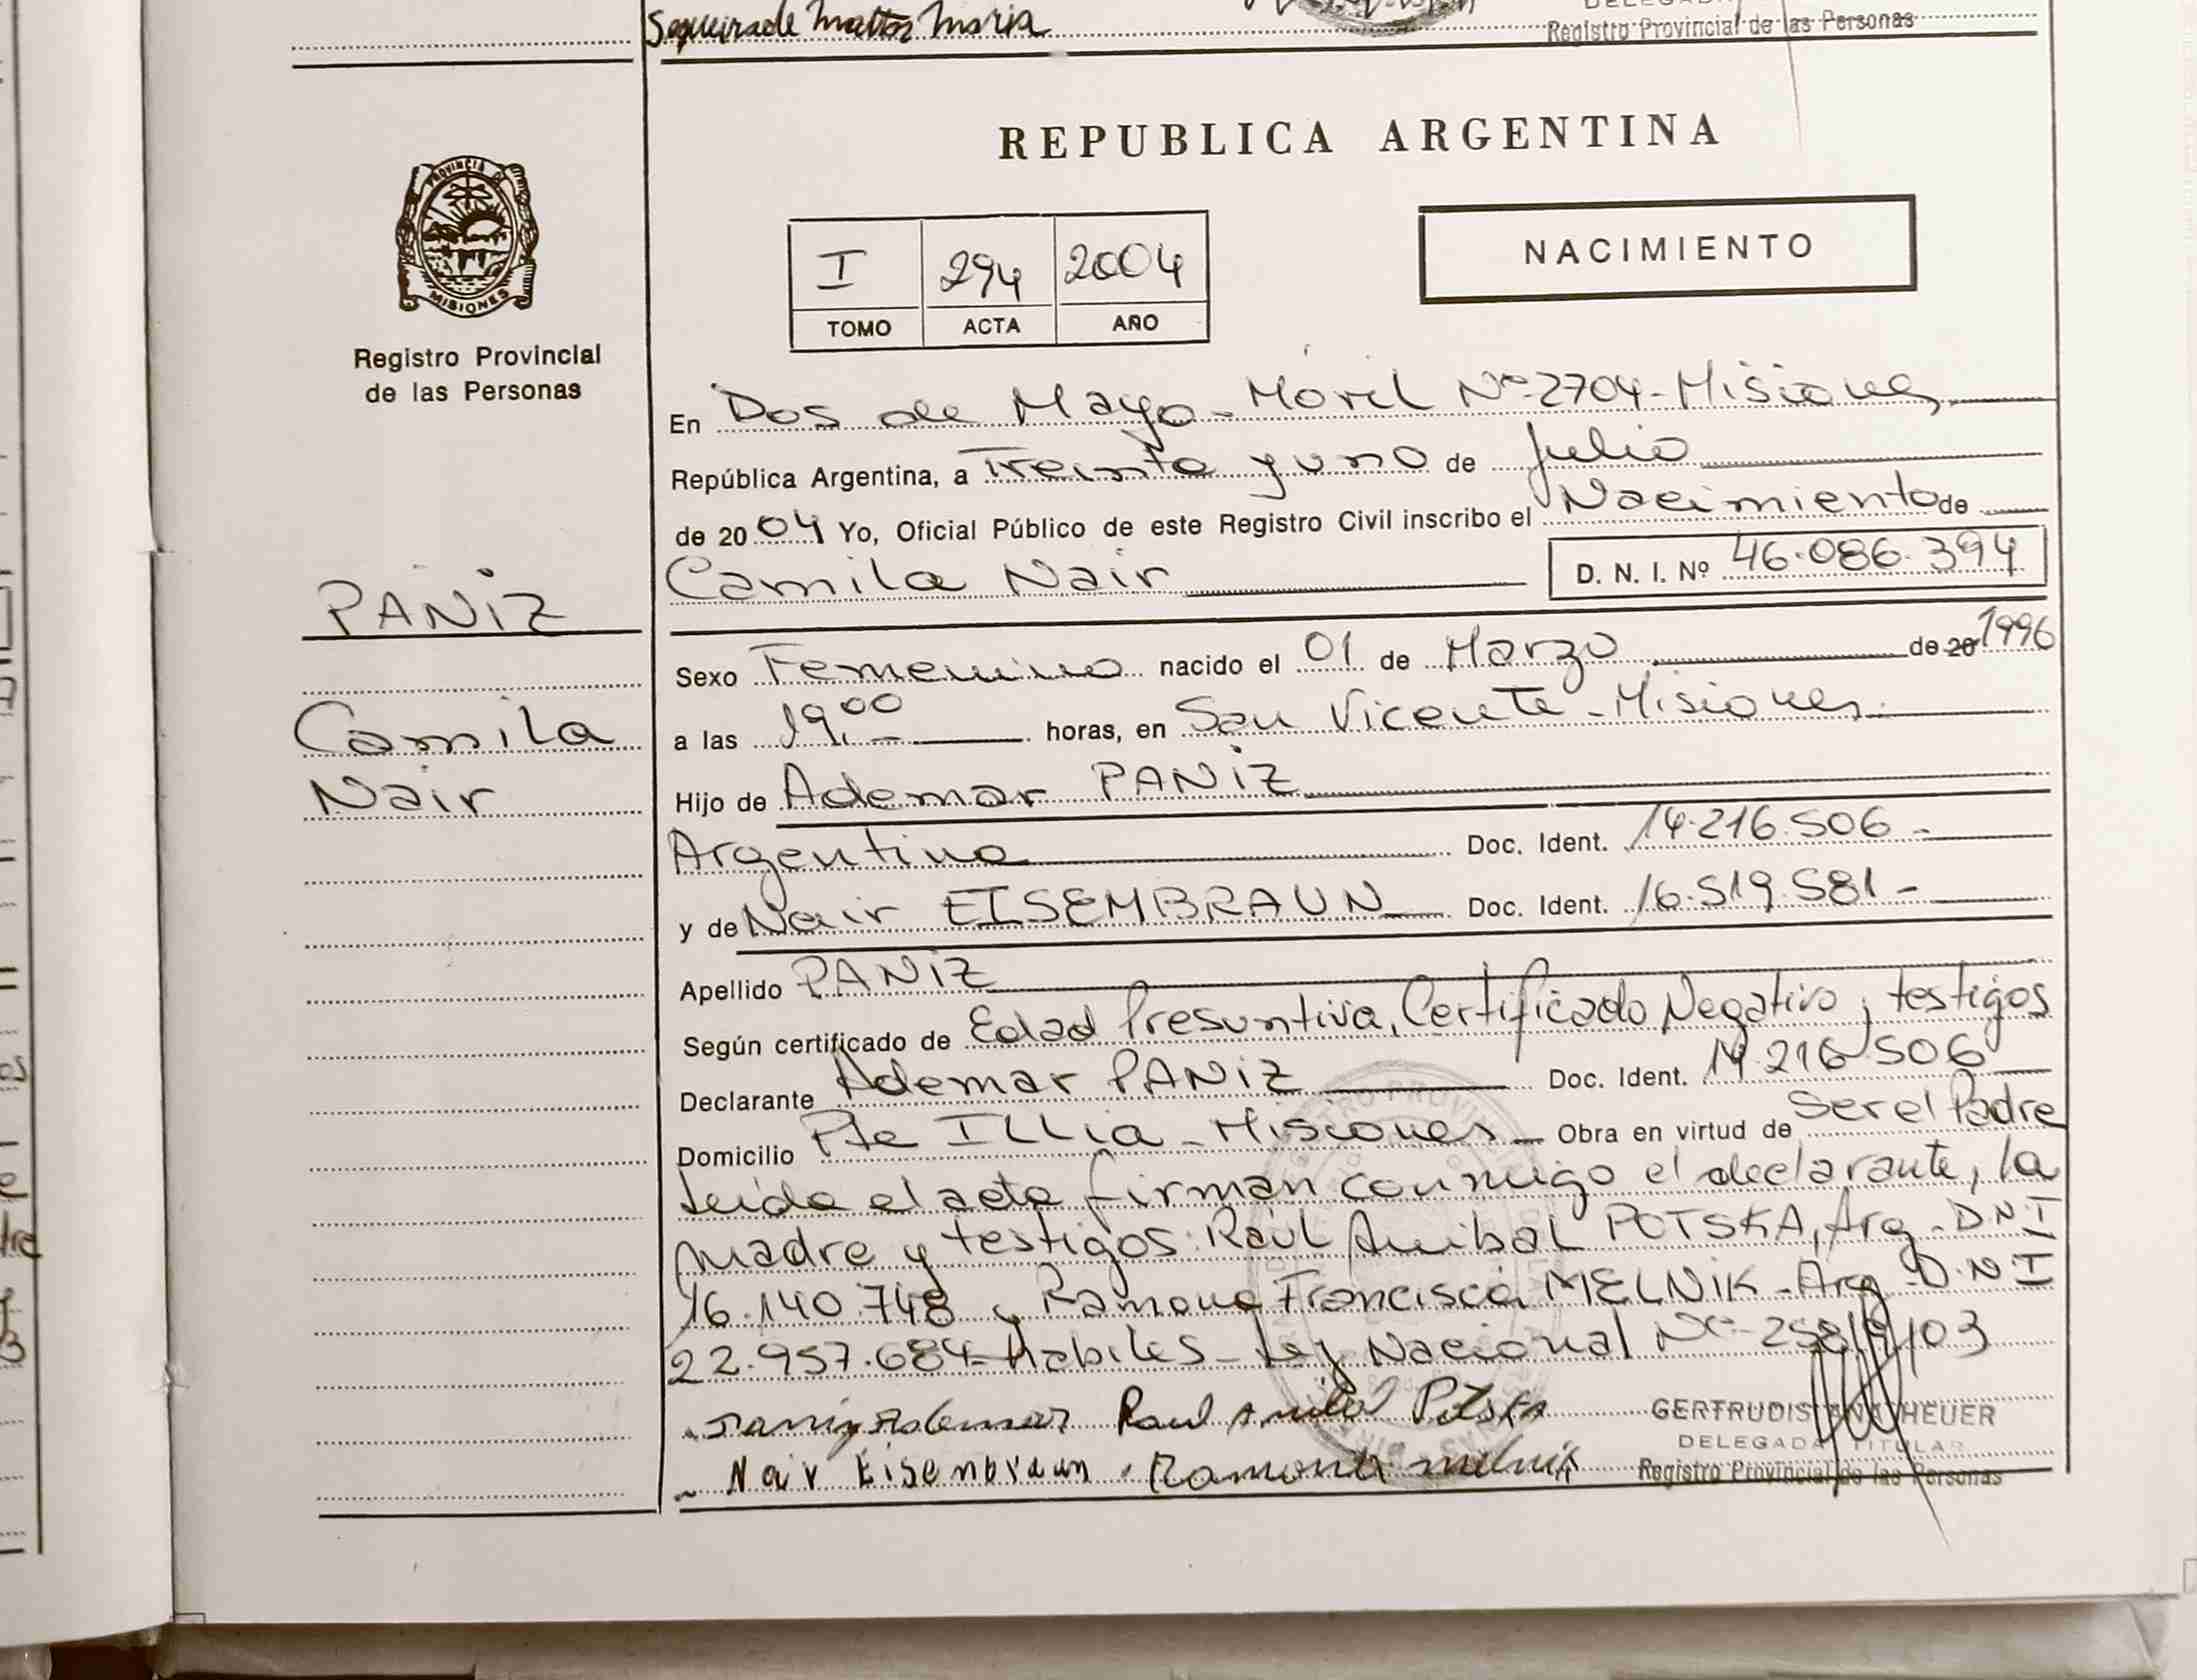 Sequeira de Mattos Maria
Registro Provincial de las Personas
PROVINCIA DE
MISIONES
Registro Provincial
de las Personas
REPUBLICA ARGENTINA
I 294 2004
TOMO ACTA AÑO
NACIMIENTO
En Dos de Mayo - Móvil Nº 2704 - Misiones
República Argentina, a Treinta y uno de Julio
de 2004 Yo, Oficial Público de este Registro Civil inscribo el Nacimiento de
Camila Nair D. N. I. Nº 46.086.394
PANIZ
Camila
Nair
Sexo Femenino nacido el 01 de Marzo de 20 1996
a las 19,00 horas, en San Vicente - Misiones
Hijo de Ademar PANIZ
Argentino Doc. Ident. 14.216.506 -
y de Nair EISEMBRAUN Doc. Ident. 16.519.581 -
Apellido PANIZ
Según certificado de Edad Presuntiva, Certificado Negativo y testigos
Declarante Ademar PANIZ Doc. Ident. 14.216.506
Domicilio Pte ILLia - Misiones - Obra en virtud de Ser el Padre
Leída el acta firman conmigo el declarante, la
madre y testigos: Raúl Anibal POTSKA, Arg. D.N.I
16.140.748 y Ramona Francisca MELNIK - Arg. D.N.I
22.957.684 - Habiles - Ley Nacional Nº 25819/03
Paniz Ademar Raul Anibal Potska
Nair Eisenbraun Ramona Melnik
GERTRUDIS ANA THEUER
DELEGADA TITULAR
Registro Provincial de las Personas